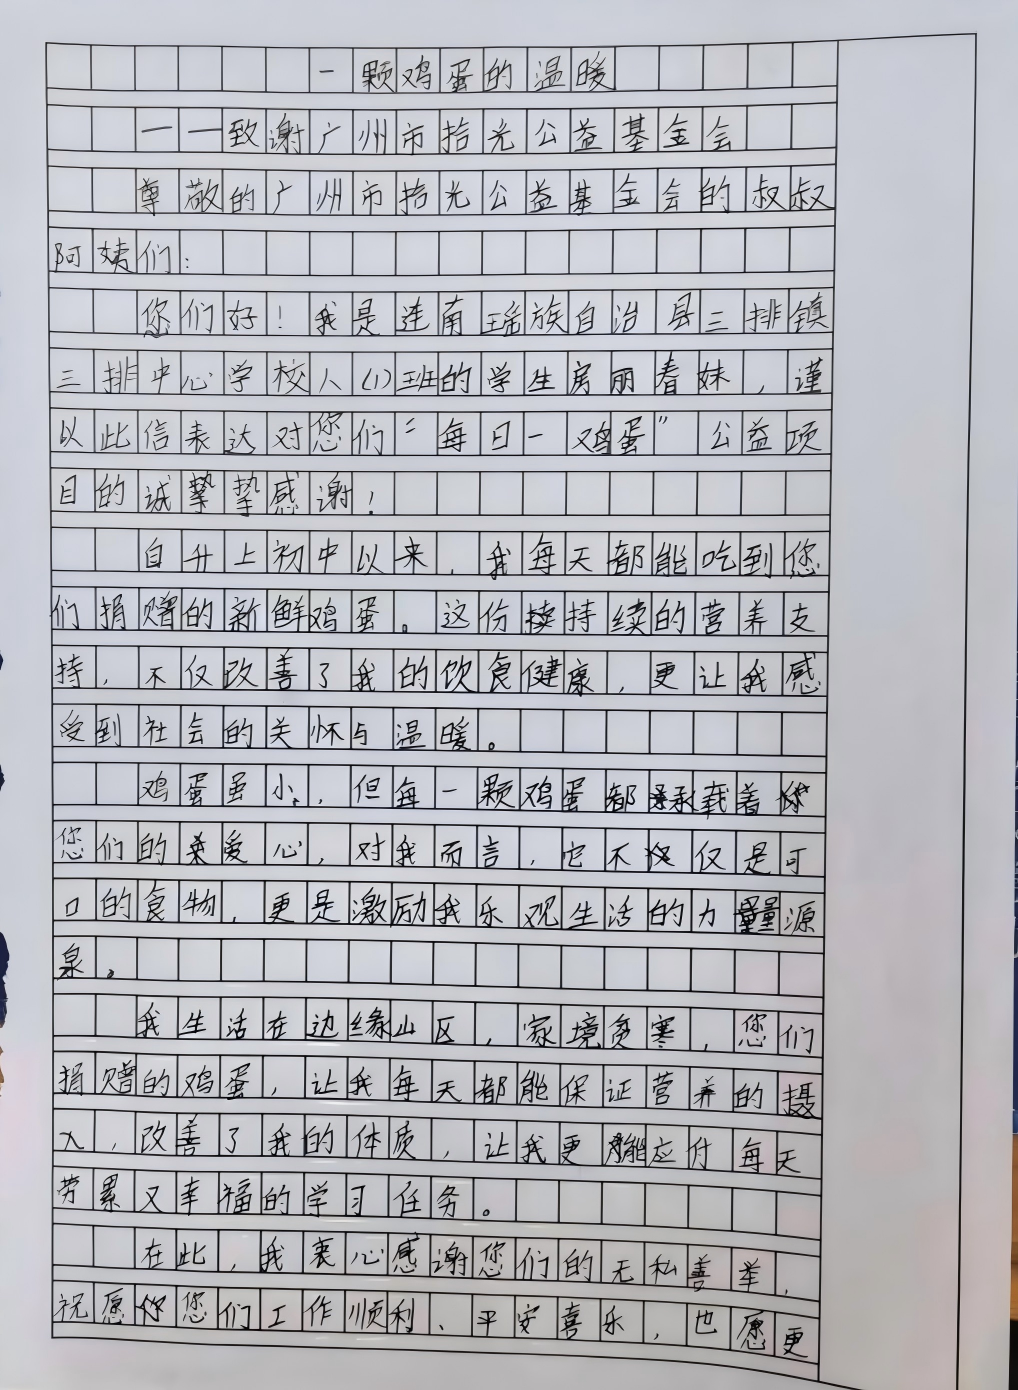 一颗鸡蛋的温暖
——致谢广州市拾光公益基金会
尊敬的广州市拾光公益基金会的叔叔
阿姨们：
您们好！我是连南瑶族自治县三排镇
三排中心学校八（1）班的学生房丽春妹，谨
以此信表达对您们“每日一鸡蛋”公益项
目的诚挚挚感谢！
自升上初中以来，我每天都能吃到您
们捐赠的新鲜鸡蛋。这份持续的营养支
持，不仅改善了我的饮食健康，更让我感
受到社会的关怀与温暖。
鸡蛋虽小，但每一颗鸡蛋都承载着
您们的爱心，对我而言，它不仅是可
口的食物，更是激励我乐观生活的力量源
泉。
我生活在边缘山区，家境贫寒，您们
捐赠的鸡蛋，让我每天都能保证营养的摄
入，改善了我的体质，让我更能应付每天
劳累又幸福的学习任务。
在此，我衷心感谢您们的无私善举，
祝愿您们工作顺利、平安喜乐，也愿更